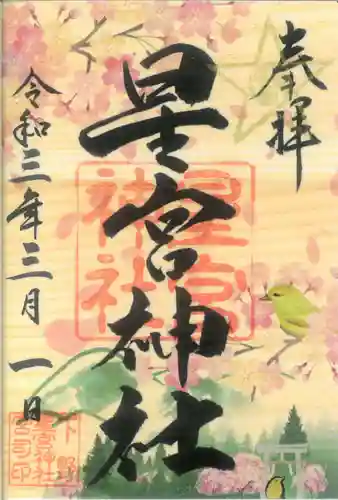 奉拝
星宮神社
令和三年三月一日
星宮
神社
下野
星宮神社
宮司印